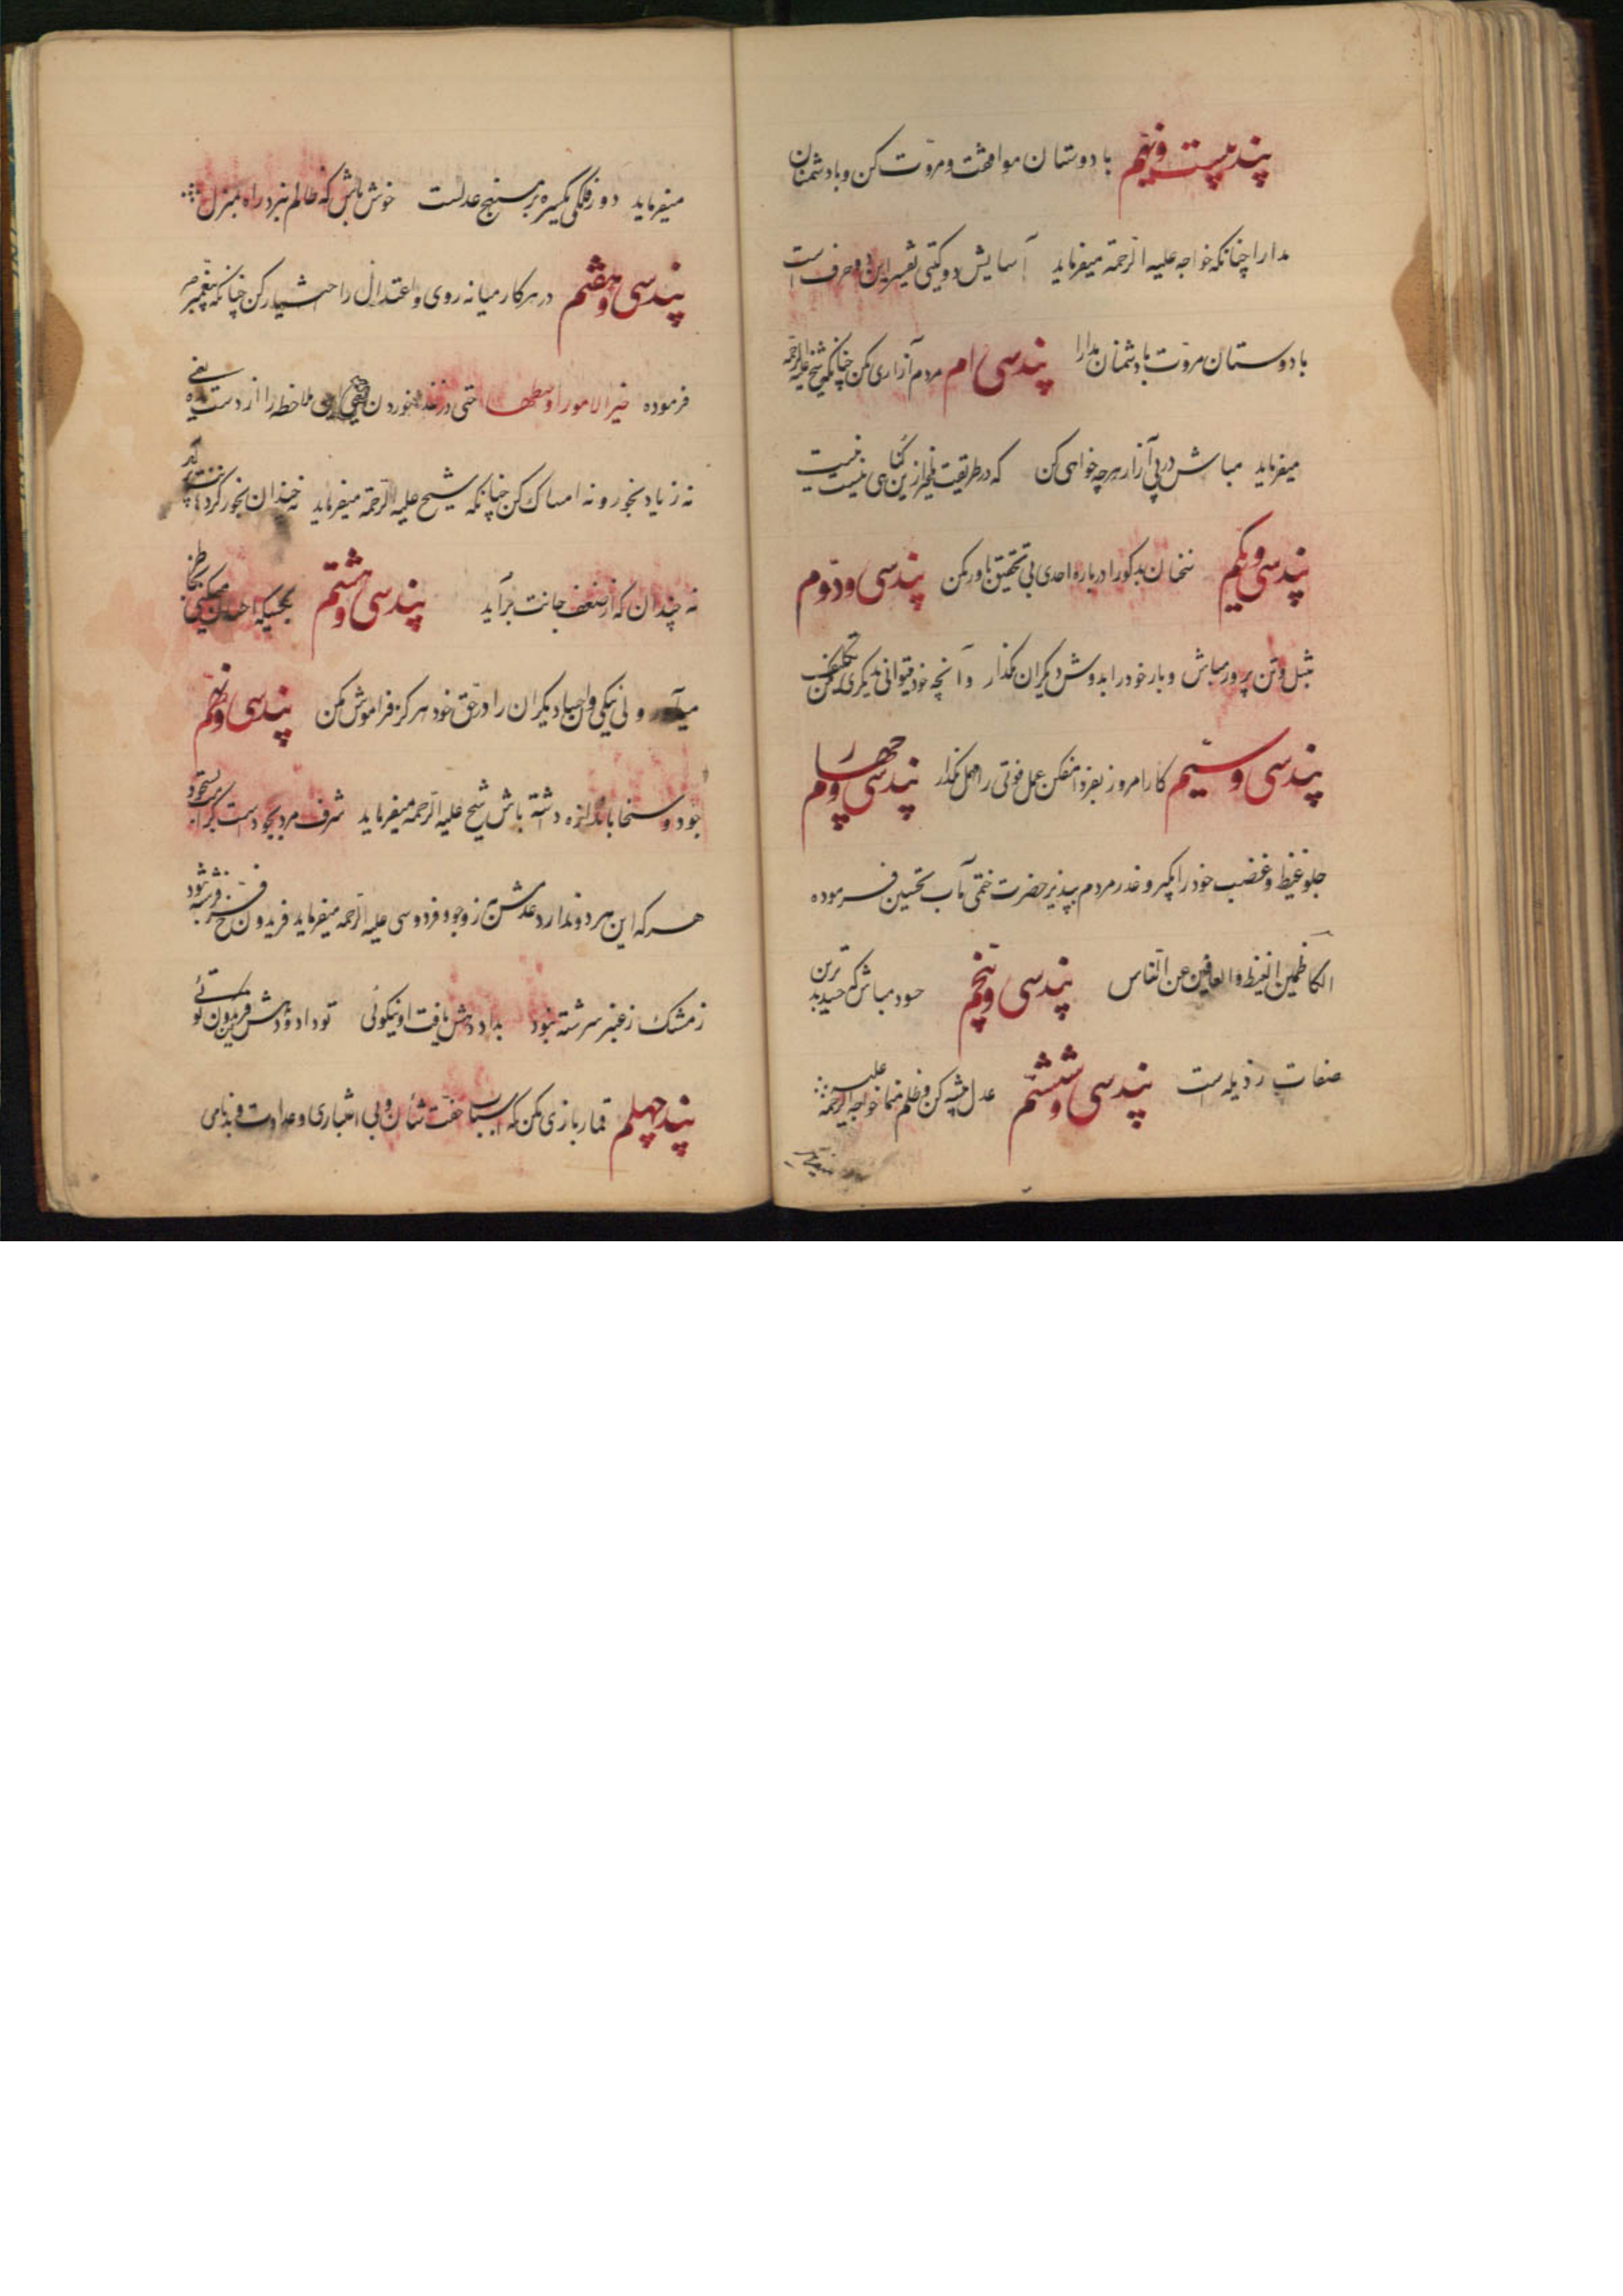 پند بیست و نهم با دوستان موافقت و مروّت کن و با دشمنان
مدارا چنانکه خواجه علیه الرّحمة میفرماید آسایش دو گیتی تفسیر این دو حرف است
با دوستان مروّت با دشمنان مدارا پند سی ام مردم آزاری مکن چنانکه شیخ علیه الرحمه
میفرماید مباش در پی آزار هرچه خواهی کن که در طریقت غیر ازین گناهی نیست
پند سی و یکم سخنان بدگو را درباره احدی بی تحقیق باور مکن پند سی و دوّم
تنبل و تن پرور مباش و بار خود را بدوش دیگران مگذار و آنچه خود میتوانی بدیگری تکلیف مکن
پند سی و سیّم کار امروز بفردا میفکن عمل فوتی را مهمل مگذار پند سی و چهارم
جلو غیظ و غضب خود را بگیر و عذر مردم بپذیر حضرت ختمی مآب تحسین فرموده
الکاظمین الغیظ والعافین عن النّاس پند سی و پنجم حسود مباش که حسد بدترین
صفات رذیله است پند سی و ششم عدل پیشه کن و ظلم منما خواجه علیه الرحمة
میفرماید دور فلکی یکسره بر منهج عدلست خوش باش که ظالم نبرد راه بمنزل
پند سی و هفتم در هر کار میانه روی و اعتدال را اختیار کن چنانکه پیغمبر ص
فرموده خیر الامور اوسطها حتی در غذا خوردن هم ملاحظه را از دست مده یعنی
نه زیاد بخور و نه امساک کن چنانکه شیخ علیه الرّحمة میفرماید نه چندان بخور کز دهانت برآید
نه چندان که از ضعف جانت برآید پند سی و هشتم بکسیکه احسان میکنی بخاطر
میاور ولی نیکی و احسان دیگران را در حق خود هرگز فراموش مکن پند سی و نهم
جود و سخا باندازه داشته باش شیخ علیه الرّحمه میفرماید شرف مرد بجودست و کرامت بسجود
هر که این هر دو ندارد عدمش به ز وجود فردوسی علیه الرّحمه میفرماید فریدون فرّخ فرشته نبود
ز مشک و ز عنبر سرشته نبود بداد و دهش یافت او نیکوئی تو داد و دهش کن فریدون توئی
پند چهلم قمار بازی مکن که اسباب خفّت شأن و بی اعتباری و عداوت و بدنامی